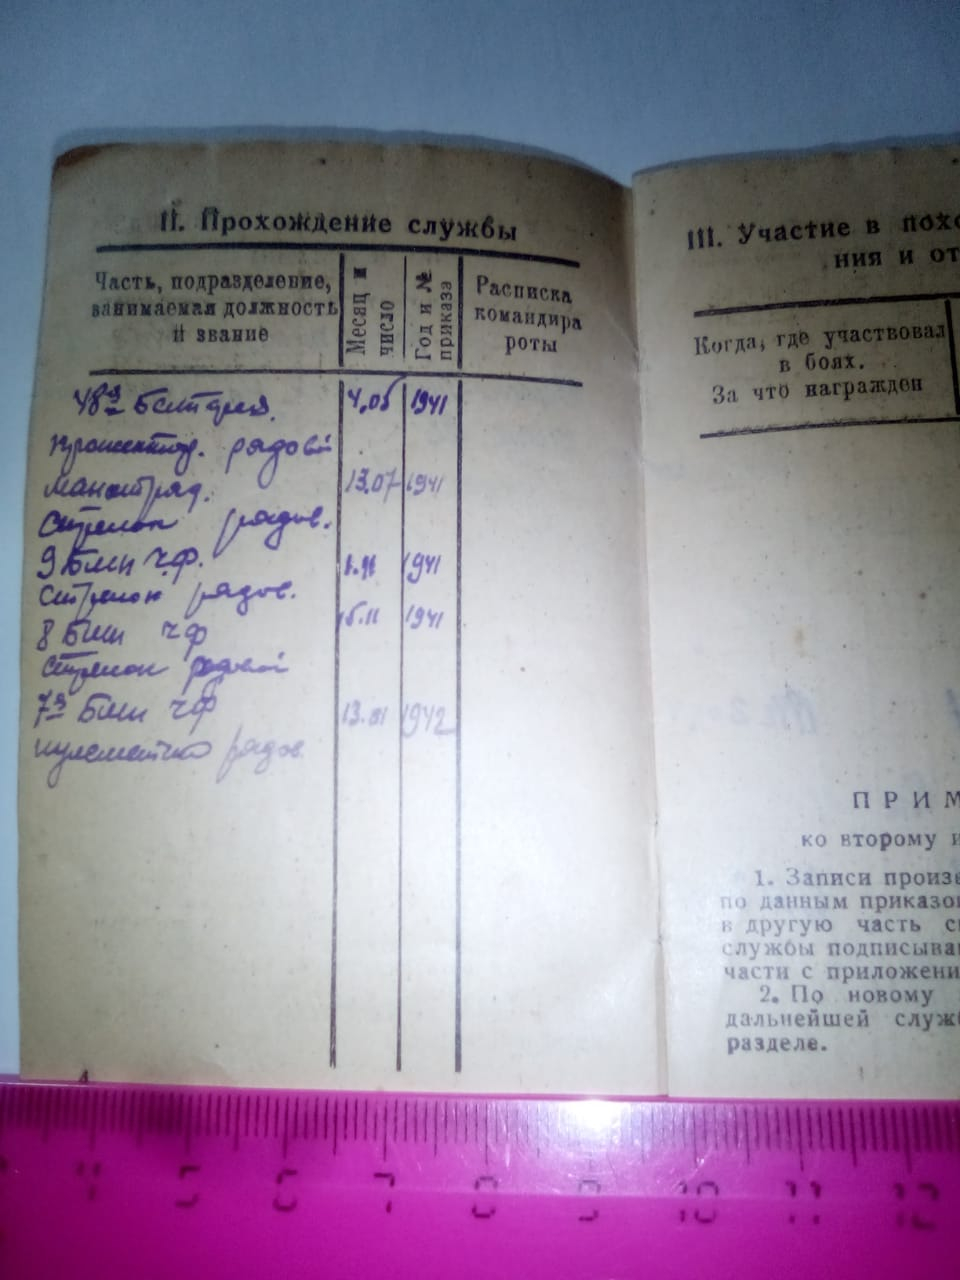 II. Прохождение службы
Часть, подразделение,
занимаемая должность
и звание
Месяц и
число
Год и №
приказа
Расписка
командира
роты
48я батарея. 4.05 1941
рядовой
13.07 1941
Стрелок рядов.
9 Бмп ЧФ. 1.11 1941
Стрелок рядов.
8 Бмп ЧФ 15.11 1941
Стрелок рядовой
7я Бмп ЧФ 13.01 1942
рядов.
4
III. Участие в
ния и
Когда, где участвовал
в боях.
За что награжден
ПРИМ
ко второму и
1. Записи произв
по данным приказо
в другую часть с
службы подписыва
части с приложени
2. По новому
дальнейшей служ
разделе.
4 5 6 7 8 9 10 11 12